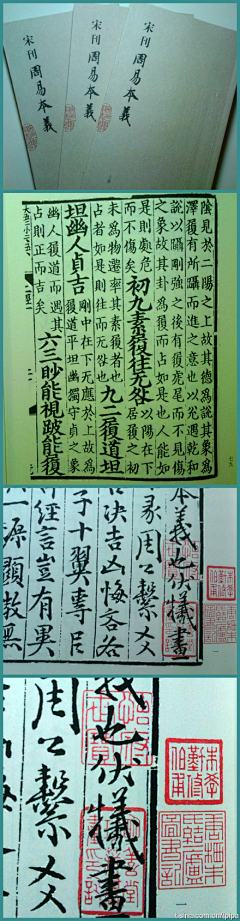 宋刊周易本義
宋刊周易本義
宋刊周易本義
陰見於二陽之上故其德為說其象為
澤履有所躡而進之意也以兌遇乾和
說以躡剛強之後有履虎尾而不見傷
之象故其卦為履而占如是也人能如
是則處危
而不傷矣
初九素履往无咎
以陽在下
居履之初
未為物遷率其素履者也
占者如是則往而无咎也
九二履道坦
坦幽人貞吉
剛中在下无應於上故為
履道平坦幽獨守貞之象
幽人履道而遇其
占則正而吉矣
六三眇能視跛能履
七五
本義也伏犧畫
彖周公繫爻
決吉凶悔吝各
子十翼專
經言豈有異
一源顯教無
朱學勤修伯甫
一
義也伏犧畫
周公繫爻
朱學勤修伯甫
一